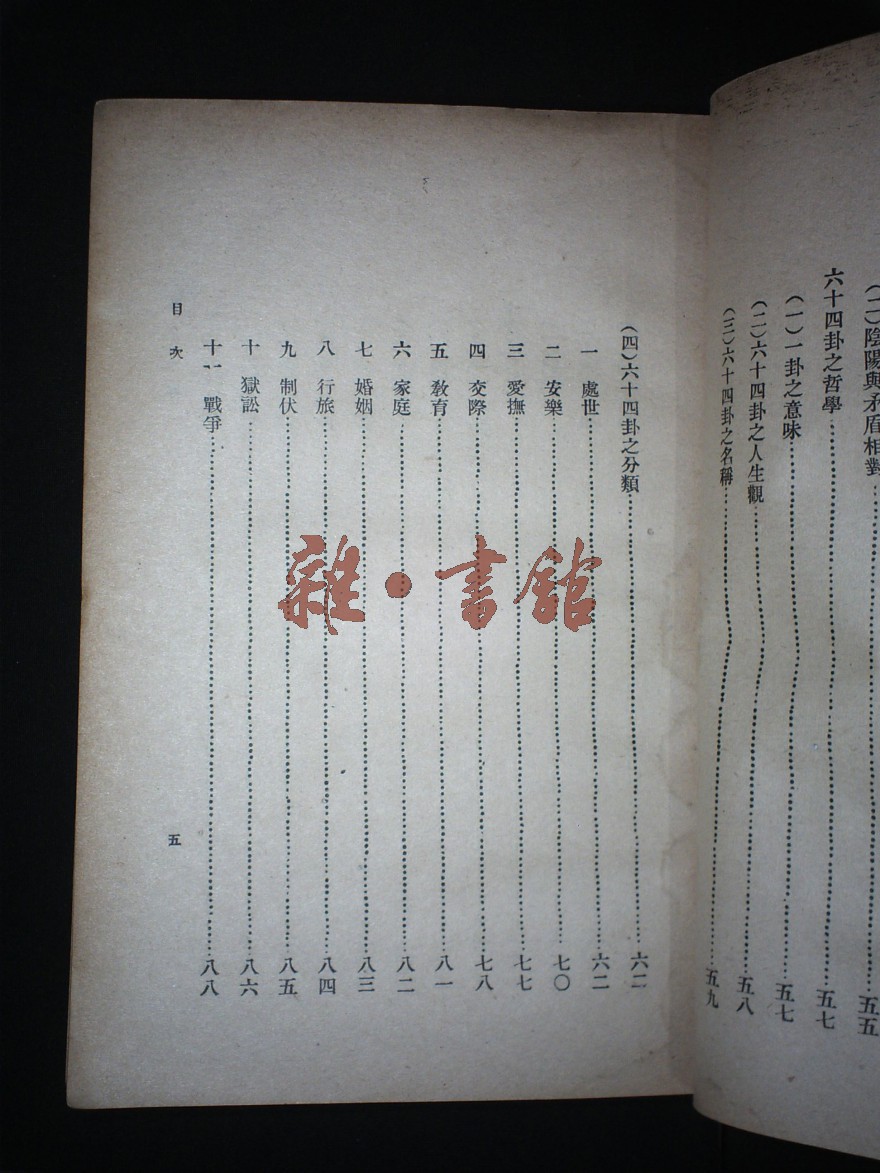 (二)陰陽與矛盾相對……五五
六十四卦之哲學……五七
(一)一卦之意味……五七
(二)六十四卦之人生觀……五八
(三)六十四卦之名稱……五九
(四)六十四卦之分類……六二
一 處世……六二
二 安樂……七〇
三 愛撫……七七
四 交際……七八
五 敎育……八一
六 家庭……八二
七 婚姻……八三
八 行旅……八四
九 制伏……八五
十 獄訟……八六
十一 戰爭……八八
目次 五
雜·書館